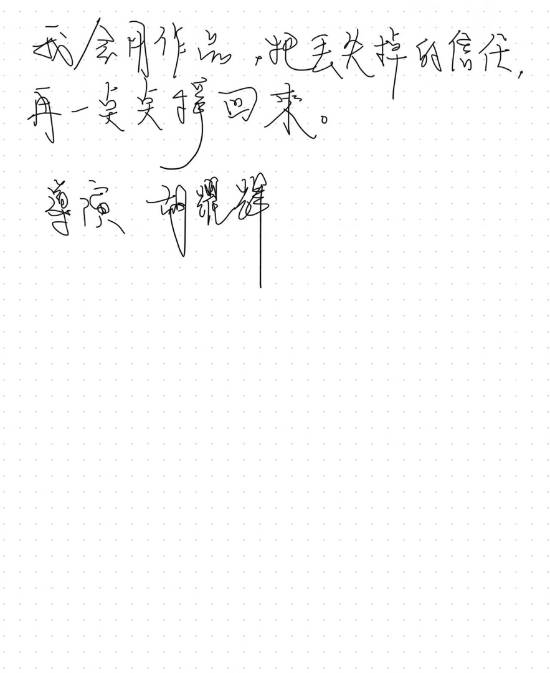 我会用作品，把丢失掉的信任，
再一点点挣回来。
導演 胡耀辉